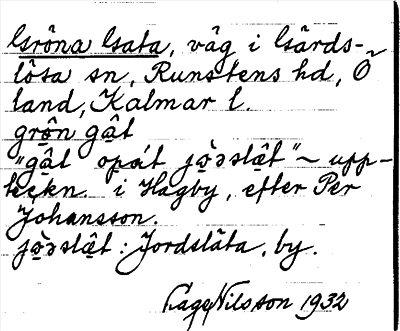 Gröna Gata, väg i Gärds-
lösa sn, Runstens hd, Ö
land, Kalmar l.
grön gât
"gât opát jo̤̍əslät" ~ upp-
teckn. i Hagby, efter Per
Johansson.
jo̤̍əslät : Jordsläta, by.
Lage Nilsson 1932